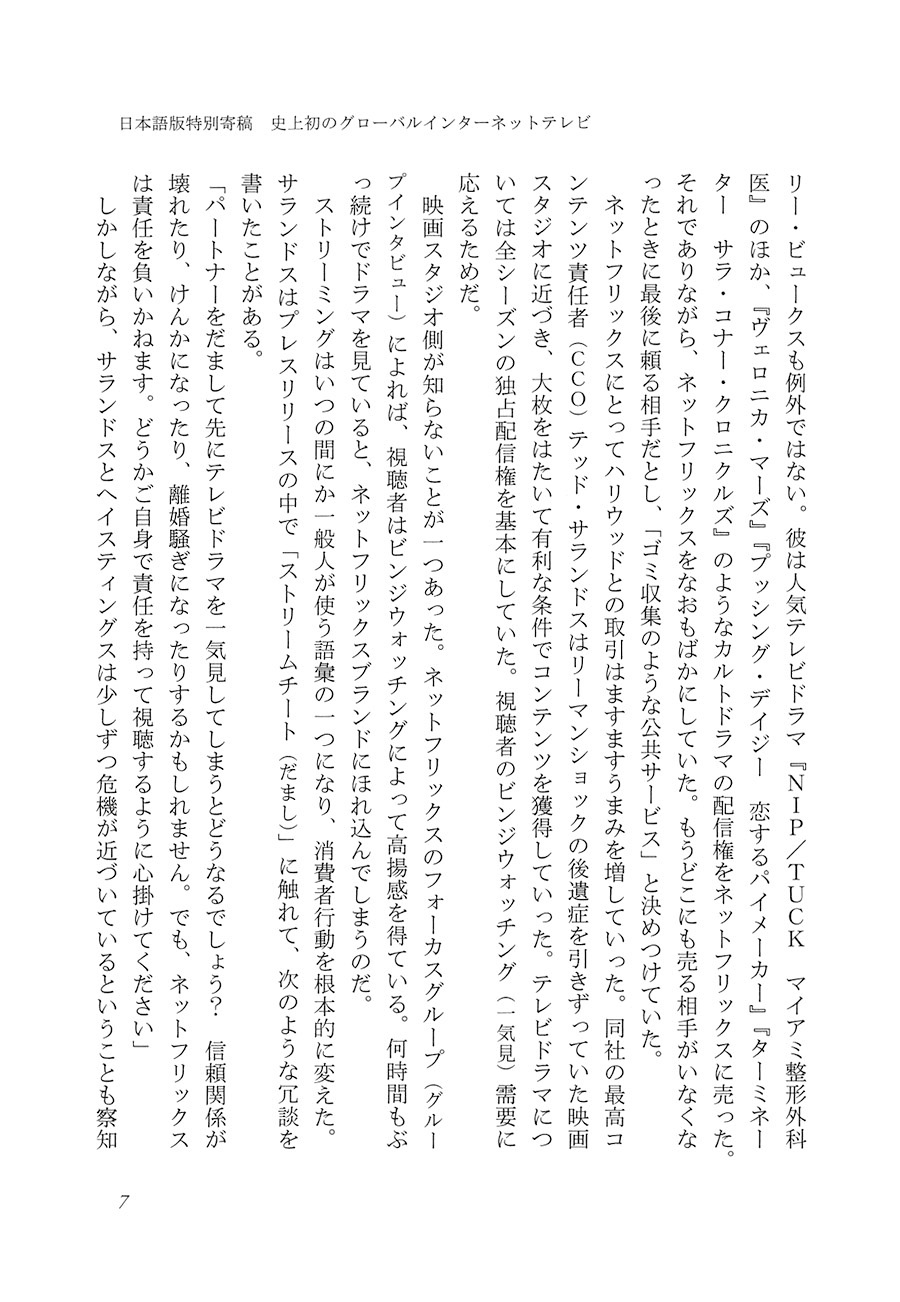 日本語版特別寄稿　史上初のグローバルインターネットテレビ
リー・ビュークスも例外ではない。彼は人気テレビドラマ『ＮＩＰ／ＴＵＣＫ　マイアミ整形外科
医』のほか、『ヴェロニカ・マーズ』『プッシング・デイジー　恋するパイメーカー』『ターミネー
ター　サラ・コナー・クロニクルズ』のようなカルトドラマの配信権をネットフリックスに売った。
それでありながら、ネットフリックスをなおもばかにしていた。もうどこにも売る相手がいなくな
ったときに最後に頼る相手だとし、「ゴミ収集のような公共サービス」と決めつけていた。
　ネットフリックスにとってハリウッドとの取引はますますうまみを増していった。同社の最高コ
ンテンツ責任者（ＣＣＯ）テッド・サランドスはリーマンショックの後遺症を引きずっていた映画
スタジオに近づき、大枚をはたいて有利な条件でコンテンツを獲得していった。テレビドラマにつ
いては全シーズンの独占配信権を基本にしていた。視聴者のビンジウォッチング（一気見）需要に
応えるためだ。
　映画スタジオ側が知らないことが一つあった。ネットフリックスのフォーカスグループ（グルー
プインタビュー）によれば、視聴者はビンジウォッチングによって高揚感を得ている。何時間もぶ
っ続けでドラマを見ていると、ネットフリックスブランドにほれ込んでしまうのだ。
　ストリーミングはいつの間にか一般人が使う語彙の一つになり、消費者行動を根本的に変えた。
サランドスはプレスリリースの中で「ストリームチート（だまし）」に触れて、次のような冗談を
書いたことがある。
「パートナーをだまして先にテレビドラマを一気見してしまうとどうなるでしょう？　信頼関係が
壊れたり、けんかになったり、離婚騒ぎになったりするかもしれません。でも、ネットフリックス
は責任を負いかねます。どうかご自身で責任を持って視聴するように心掛けてください」
　しかしながら、サランドスとヘイスティングスは少しずつ危機が近づいているということも察知
7